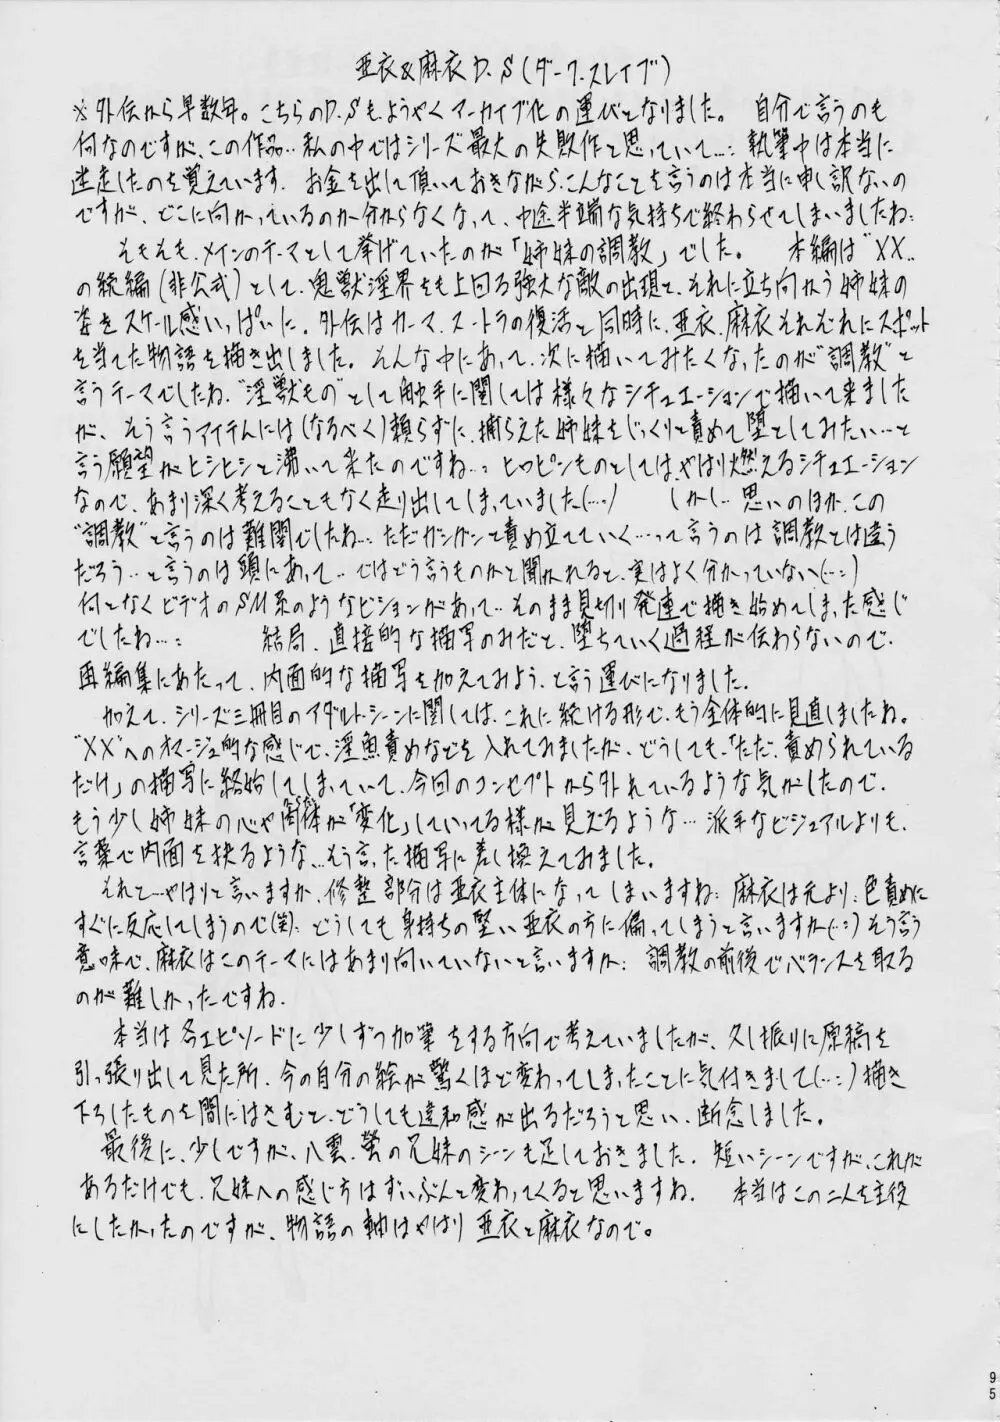 亜衣&麻衣D.S(ダーク.スレイブ)
※外伝から早数年。こちらのD.Sも、ようやくアーカイブ化の運びとなりました。 自分で言うのも
何なのですが、この作品‥私の中ではシリーズ最大の失敗作と思っていて…: 執筆中は本当に
迷走したのを覚えています. お金を出して頂いておきながら、こんなことを言うのは本当に申し訳ないの
ですが、どこに向かっているのか分からなくなって、中途半端な気持ちで終わらせてしまいましたね:
そもそも、メインのテーマとして挙げていたのが「姉妹の調教」でした。 本編は“XX‥
の続編(非公式)として、鬼獣淫界をも上回る強大な敵の出現と、それに立ち向かう姉妹の
姿をスケール感いっぱいに、外伝はカーマ.スートラの復活と同時に、亜衣.麻衣それぞれにスポット
を当てた物語を描き出しました。そんな中にあって、次に描いてみたくなったのが“調教”と
言うテーマでしたね.“淫獣もの”として触手に関しては様々なシチュエーションで描いて来ました
が、そう言うアイテムには(なるべく)頼らずに、捕らえた姉妹をじっくりと責めて堕としてみたい…と
言う願望がヒシヒシと沸いて来たのですね…: ヒロピンものとしては、やはり燃えるシチュエーション
なので、あまり深く考えることもなく走り出してしまっていました(…:) しかし‥思いのほか、この
“調教”と言うのは難関でしたね…: ただガンガンと責め立てていく…って言うのは調教とは違う
だろう‥と言うのは頭にあって‥ではどう言うものかと聞かれると、実はよく分かっていない(…:)
何となくビデオのSM系のようなビジョンがあって‥そのまま見切り発進で描き始めてしまった感じ
でしたね…: 結局、直接的な描写のみだと、堕ちていく過程が伝わらないので、
再編集にあたって、内面的な描写を加えてみよう、と言う運びになりました.
加えて、シリーズ三冊目のアダルト・シーンに関しては、これに続ける形で、もう全体的に見直しましたね。
“XX”へのオマージュ的な感じで、淫魚責めなどを入れてみましたが、どうしても、「ただ、責められている
だけ」の描写に終始してしまっていて、今回のコンセプトから外れているような気がしたので、
もう少し姉妹の心や肉体が「変化」していってる様が見えるような…派手なビジュアルよりも、
言葉で内面を抉るような…そう言った描写に差し換えてみました。
それと…やはりと言いますか、修整部分は亜衣主体になってしまいますね: 麻衣は元より、色責めに
すぐに反応してしまうので(笑): どうしても身持ちの堅い亜衣の方に偏ってしまうと言いますか(…:) そう言う
意味で、麻衣はこのテーマにはあまり向いていないと言いますか: 調教の前後でバランスを取る
のが難しかったですね.
本当は各エピソードに少しずつ加筆をする方向で考えていましたが、久し振りに原稿を
引っ張り出して見た所、今の自分の絵が驚くほど変わってしまったことに気付きまして(…:) 描き
下ろしたものを間にはさむと、どうしても違和感が出るだろうと思い、断念しました。
最後に、少しですが、八雲.螢の兄妹のシーンも足しておきました. 短いシーンですが、これが
あるだけでも、兄妹への感じ方はずいぶんと変わってくると思いますね. 本当はこの二人を主役
にしたかったのですが、物語の軸はやはり亜衣と麻衣なので。
95